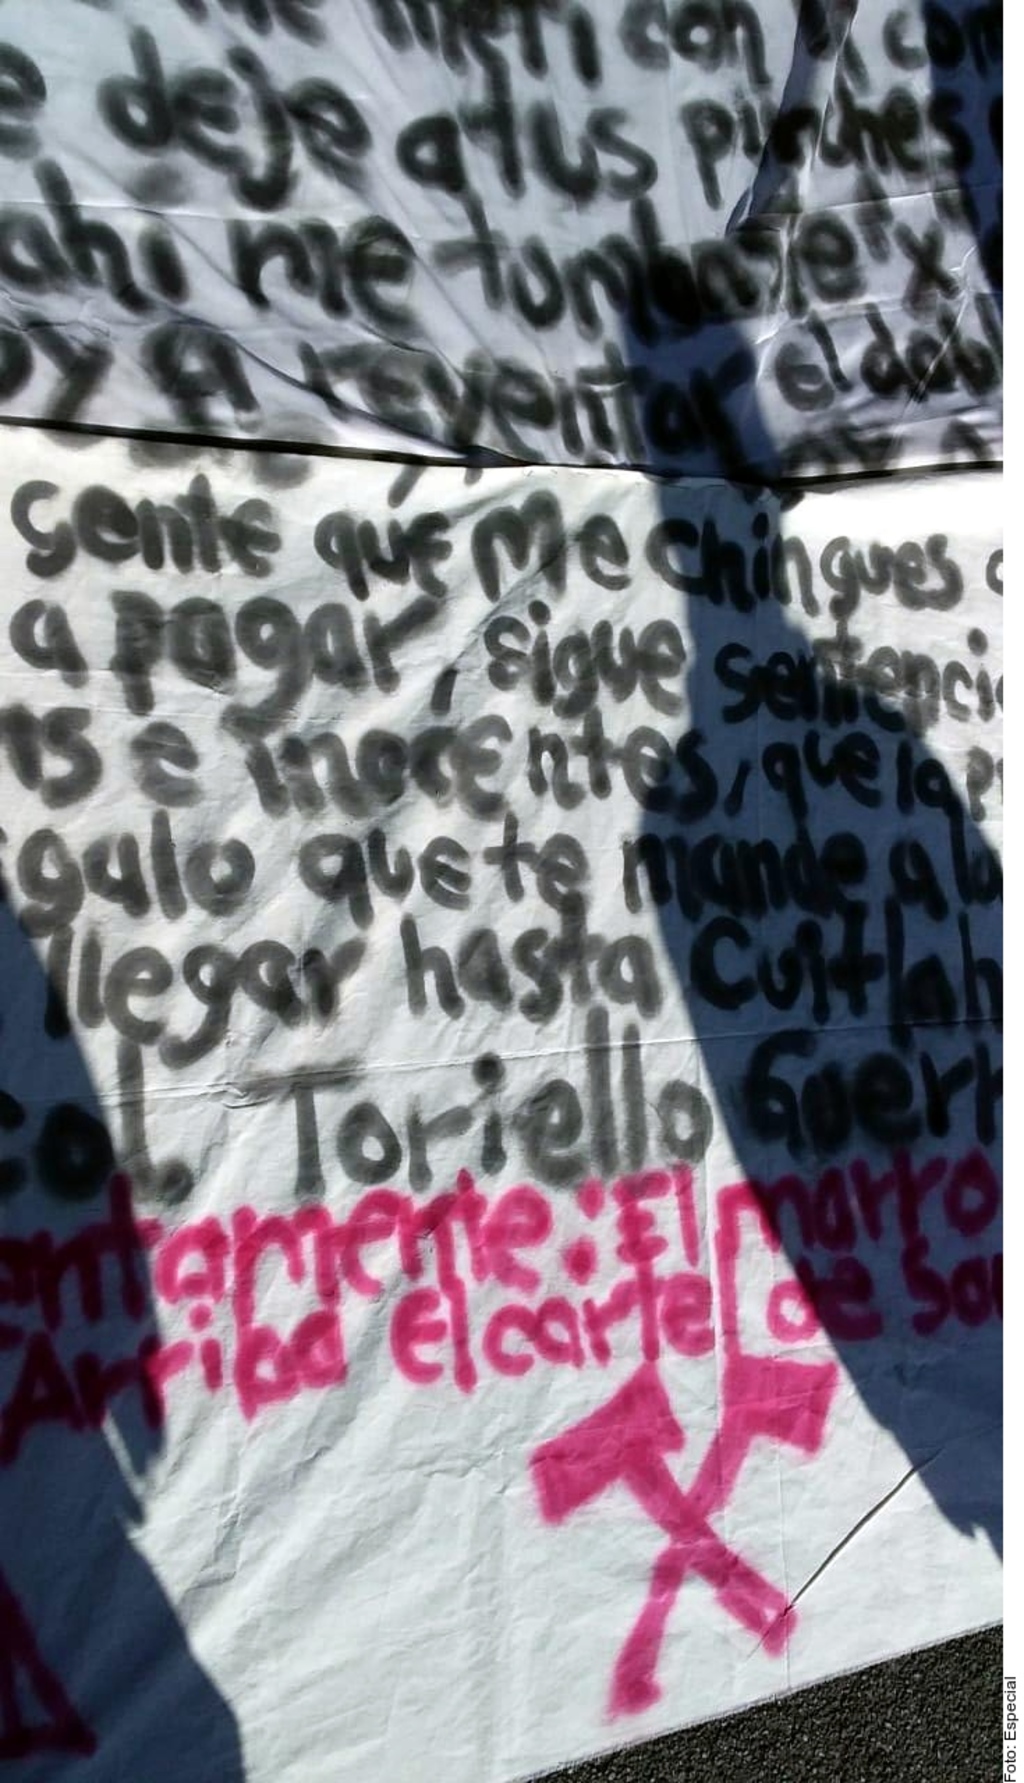 meti con
e dejo a tus pinches
ahi me tumbaste x
oy A reventar el
gente que Me chingues
a pagar, sigue
ns e inocentes, que la
galo que te mande a la
llegar hasta Cuitlah
col. Toriello Guerr
entamente: El marro
Arriba El cartel de San
Foto: Especial